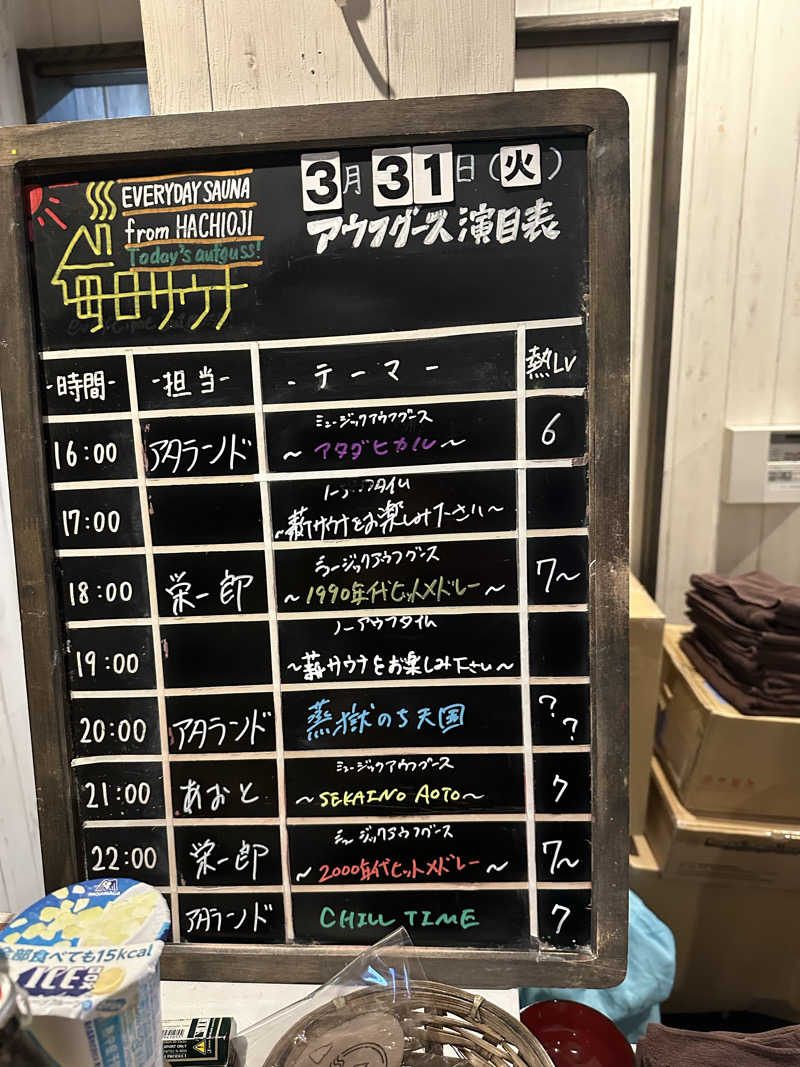 EVERYDAY SAUNA
from HACHIOJI
Today's aufguss!
毎日サウナ
3月31日(火)
アウフグース演目表
-時間- -担当- -テーマ- 熱Lv
16:00 アタランド ミュージックアウフグース 6
~アタダヒカル~
17:00 ノーアウフタイム
~薪サウナをお楽しみ下さい~
18:00 栄一郎 ミュージックアウフグース 7~
~1990年代ヒットメドレー~
19:00 ノーアウフタイム
~薪サウナをお楽しみ下さい~
20:00 アタランド 蒸獄のち天国 ??
21:00 あおと ミュージックアウフグース 7
~SEKAINO AOTO~
22:00 栄一郎 ミュージックアウフグース 7~
~2000年代ヒットメドレー~
アタランド CHILL TIME 7
全部食べても15kcal
ICE BOX